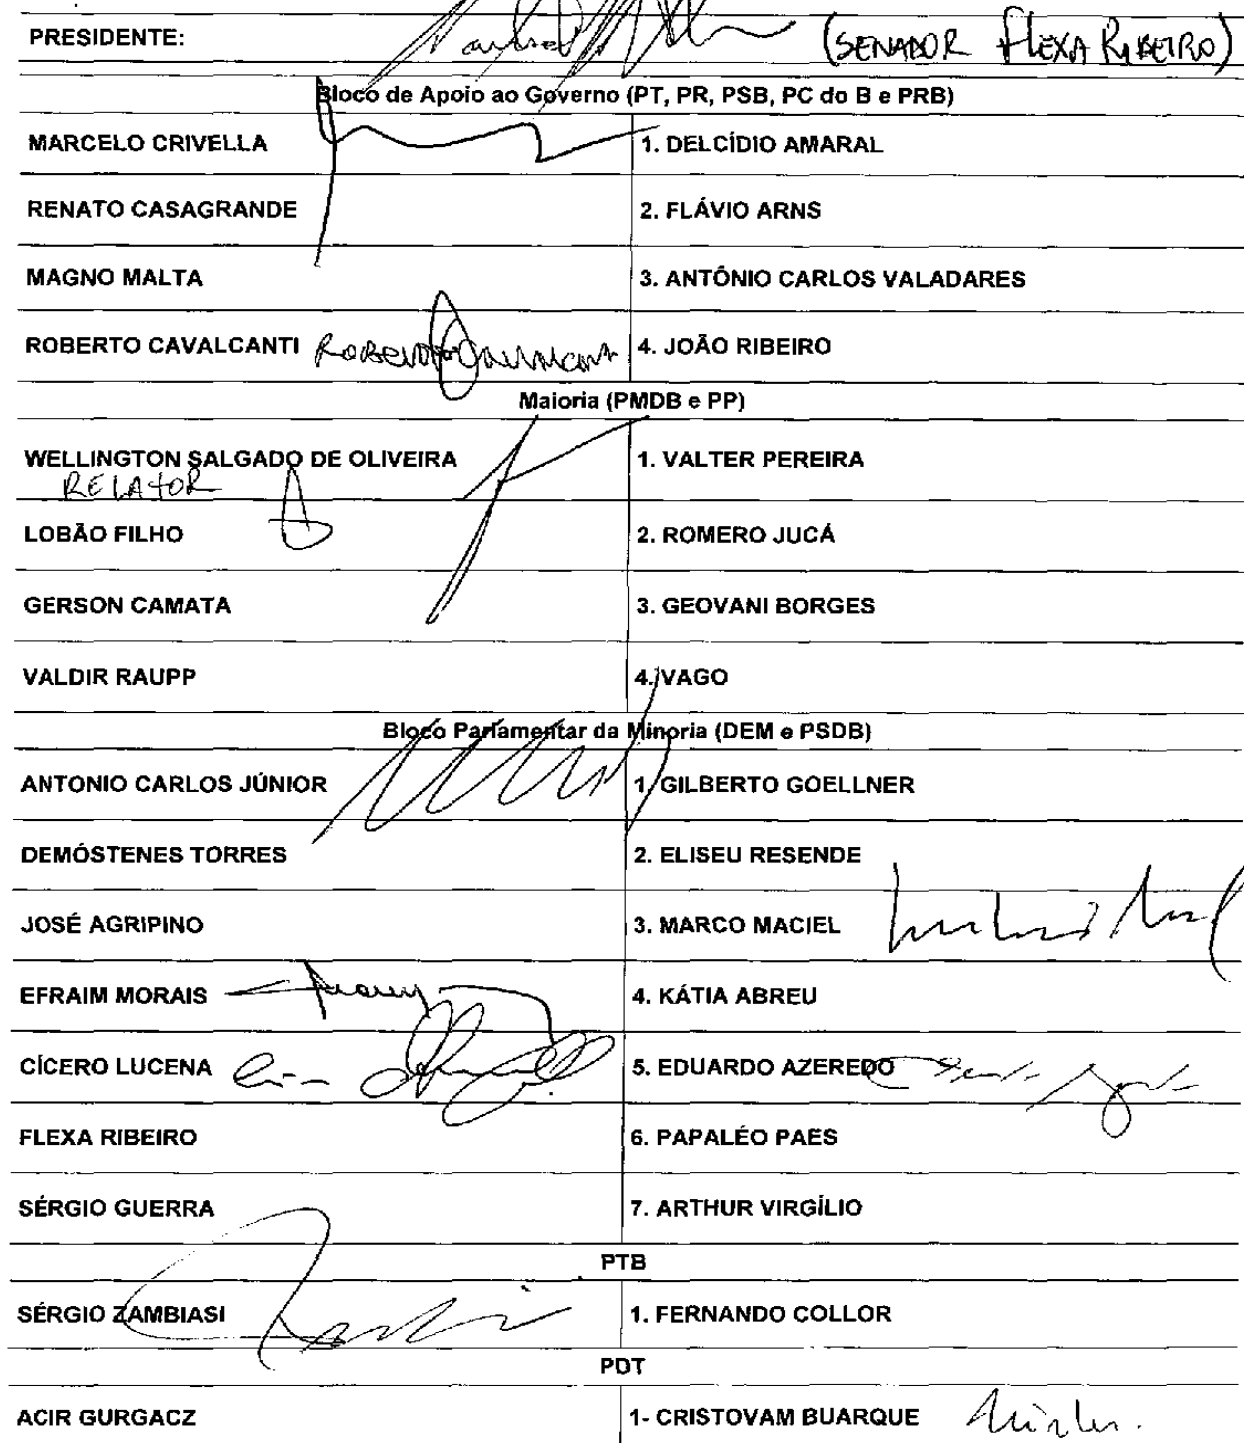 PRESIDENTE: (SENADOR FLEXA RIBEIRO)
Bloco de Apoio ao Governo (PT, PR, PSB, PC do B e PRB)
MARCELO CRIVELLA 1. DELCÍDIO AMARAL
RENATO CASAGRANDE 2. FLÁVIO ARNS
MAGNO MALTA 3. ANTÔNIO CARLOS VALADARES
ROBERTO CAVALCANTI Roberto Cavalcanti 4. JOÃO RIBEIRO
Maioria (PMDB e PP)
WELLINGTON SALGADO DE OLIVEIRA 1. VALTER PEREIRA
RELATOR
LOBÃO FILHO 2. ROMERO JUCÁ
GERSON CAMATA 3. GEOVANI BORGES
VALDIR RAUPP 4. VAGO
Bloco Parlamentar da Minoria (DEM e PSDB)
ANTONIO CARLOS JÚNIOR 1. GILBERTO GOELLNER
DEMÓSTENES TORRES 2. ELISEU RESENDE
JOSÉ AGRIPINO 3. MARCO MACIEL
EFRAIM MORAIS 4. KÁTIA ABREU
CÍCERO LUCENA 5. EDUARDO AZEREDO
FLEXA RIBEIRO 6. PAPALÉO PAES
SÉRGIO GUERRA 7. ARTHUR VIRGÍLIO
PTB
SÉRGIO ZAMBIASI 1. FERNANDO COLLOR
PDT
ACIR GURGACZ 1- CRISTOVAM BUARQUE